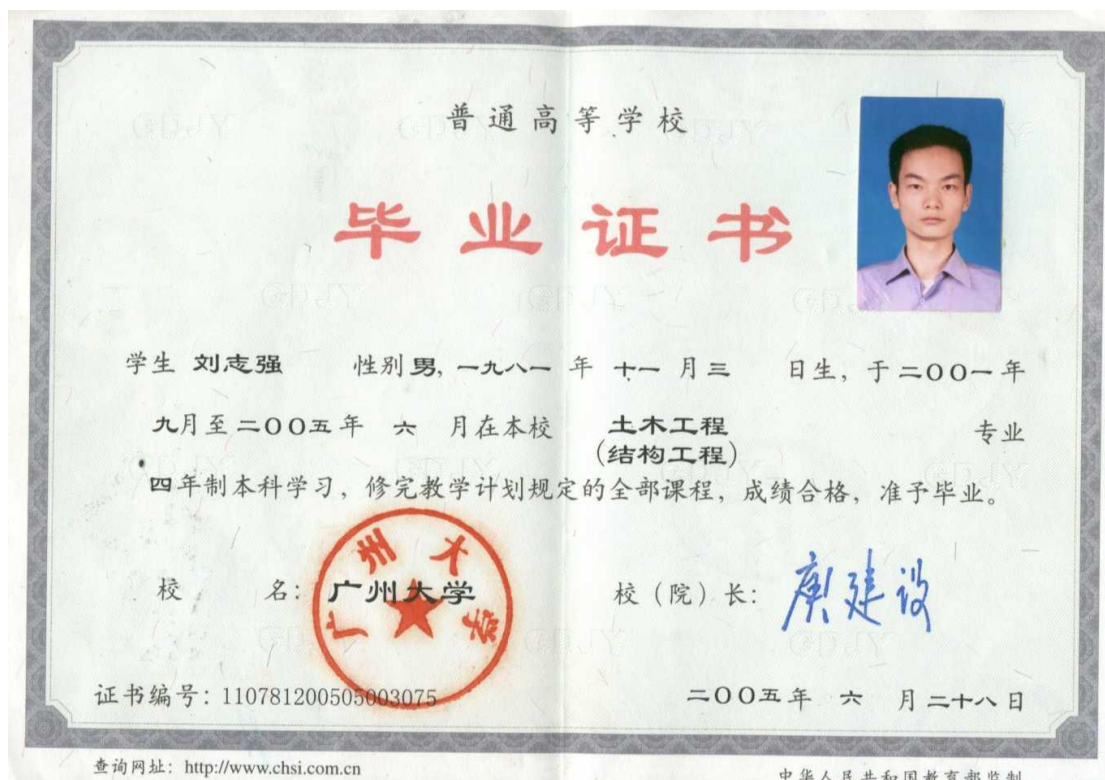 普通高等学校
毕业证书
学生 刘志强 性别 男, 一九八一 年 十一 月 三 日生, 于 二〇〇一 年
九月至 二〇〇五 年 六 月在本校 土木工程 专业
(结构工程)
四年制本科学习, 修完教学计划规定的全部课程, 成绩合格, 准予毕业。
校 名: 广州大学
广州大学
校(院)长: 庾建设
证书编号: 110781200505003075
二〇〇五 年 六 月 二十八 日
查询网址: http://www.chsi.com.cn
中华人民共和国教育部监制